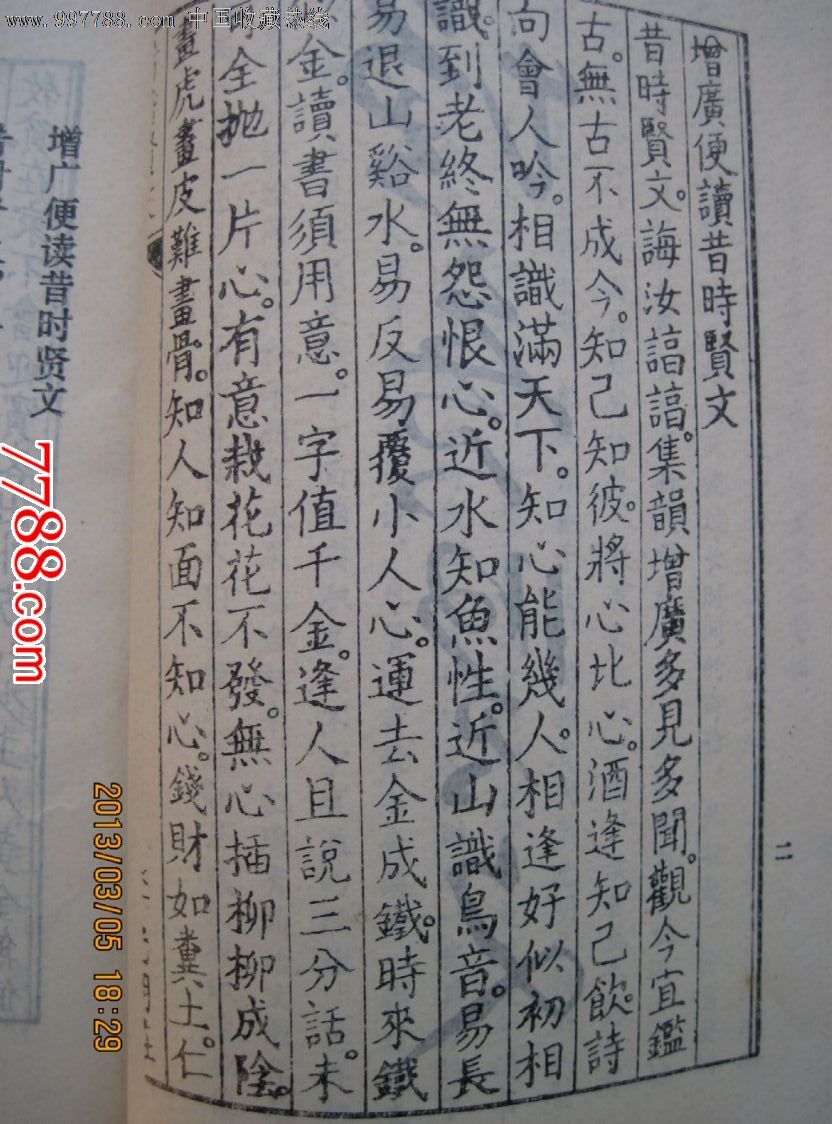 www.997788.com 中国收藏热线
增廣便讀昔時賢文
昔時賢文。誨汝諄諄。集韻增廣多見多聞。觀今宜鑑
古。無古不成今。知己知彼。將心比心。酒逢知己飲。詩
向會人吟。相識滿天下。知心能幾人。相逢好似初相
識。到老終無怨恨心。近水知魚性。近山識鳥音。易長
易退山谿水。易反易覆小人心。運去金成鐵。時來鐵
金。讀書須用意。一字值千金。逢人且說三分話。未
全拋一片心。有意栽花花不發。無心插柳柳成陰。
畫虎畫皮難畫骨。知人知面不知心。錢財如糞土。仁
二
增广便读昔时贤文
7788.com
2013/03/05 18:29